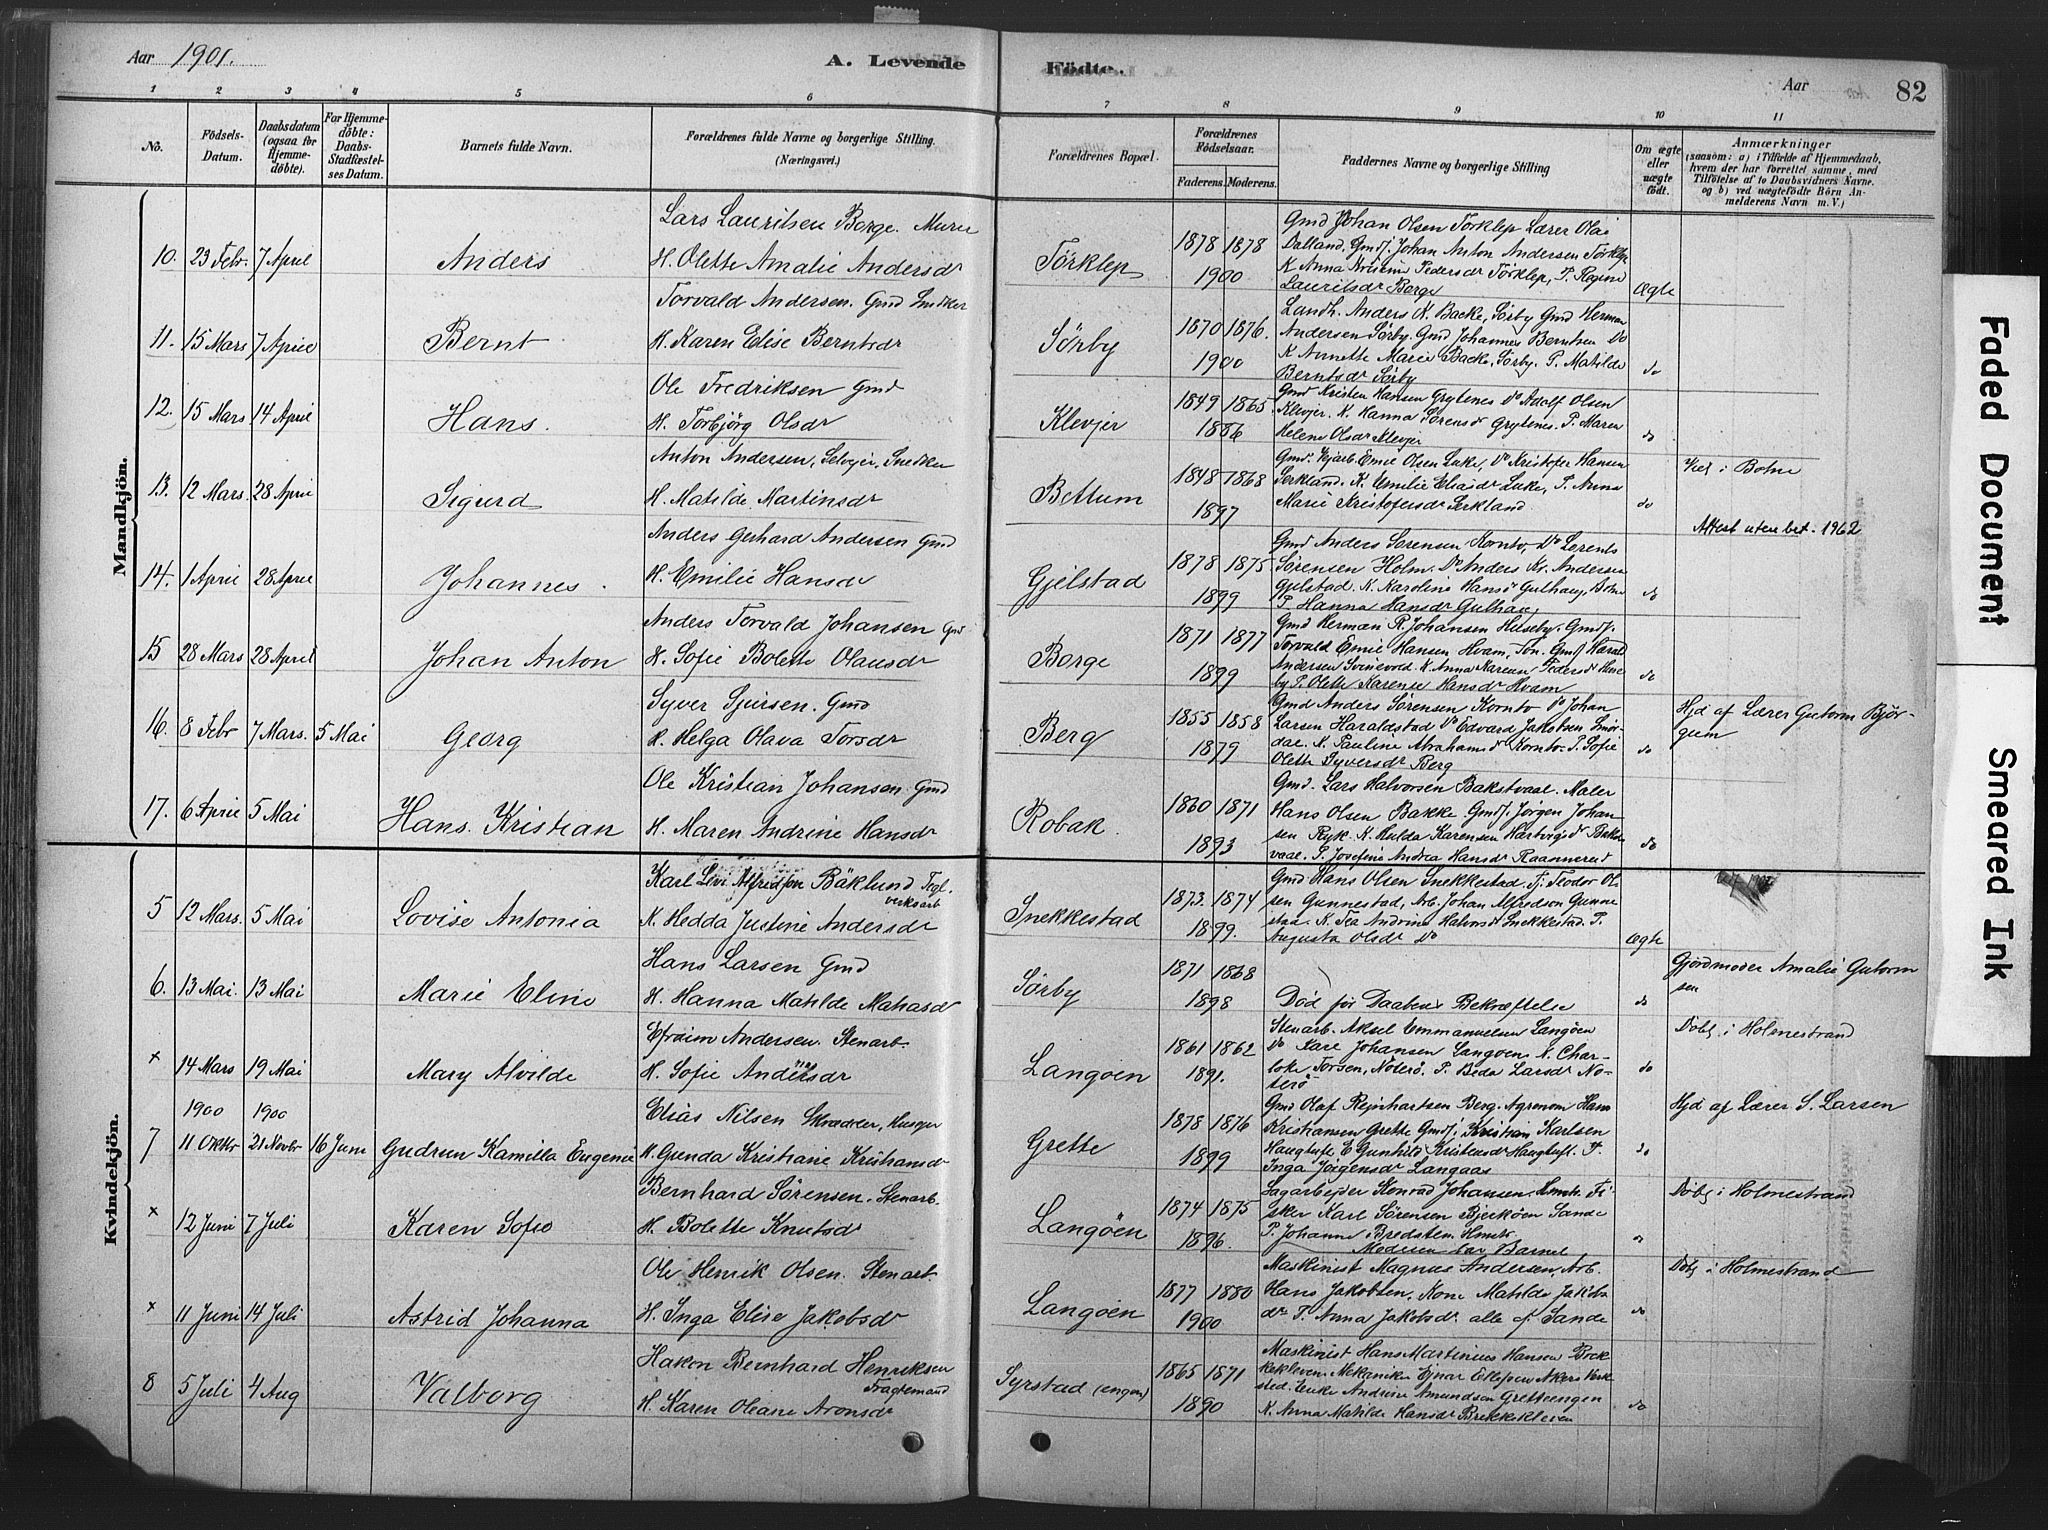 Aar 1901.
A. Levende Fødte.
Aar
82
1 2 3 4 5 6 7 8 9 10 11
No.
Födsels-Datum.
Daabsdatum (ogsaa for Hjemme-döbte).
For Hjemme-döbte: Daabs-Stadfæstel-ses Datum.
Barnets fulde Navn.
Forældrenes fulde Navne og borgerlige Stilling.
(Næringsvei.)
Forældrenes Bopæl.
Forældrenes Födselsaar.
Faderens. Moderens.
Faddernes Navne og borgerlige Stilling
Om ægte eller uægte födt.
Anmærkninger
(saasom: a) i Tilfælde af Hjemmedaab, hvem der har forrettet samme, med Tilföielse af to Daabsvidners Navne. og b) ved uægtefödte Börn An-melderens Navn m. V.)
Mandkjön.
10. 23 Febr. 7 April
Anders
Lars Lauritsen Borge. Murer
H. Olette Amalie Andersdr
Torklep
1878 1878
1900
Gmd Johan Olsen Torklep Lærer Olai
Dalland. Gmdf. Johan Anton Andersen Torklep
K Anna Pedersdr Torklep, P. Regine
Lauritsdr Borge
Ægte
11. 15 Mars 7 April
Bernt
Torvald Andersen. Gmd Snedker
H. Karen Elise Berntsdr
Sörby
1870 1876.
1900
Landh. Anders K. Backe, Sörby Gmd Herman
Andersen Sörby. Gmd Johannes Berntsen Do
K Annette Marie Backe, Sörby. P. Matilde
Berntsdr Sörby
do
12. 15 Mars. 14 April
Hans.
Ole Fredriksen Gmd
H. Torbjörg Olsdr
Klevjer
1849 1865
1886
Gmd Kristen Hansen Grytenes Do Adolf Olsen
Klevjer. K. Hanna Sörensdr Grytenes. P. Maren
Helene Olsdr Klevjer
do
13. 12 Mars. 28 April
Sigurd
Anton Andersen, Selvejer, Snedker
H. Matilde Martinsdr
Bettum
1848 1868
1897
Gmd. Emil Olsen Luke, Do Kristofer Hansen
Serkland. K. Emilie Eliasdr Luke, P. Anna
Marie Kristofersdr Serkland.
do
Viet i Botne
Attest uten bet. 1962
14. 1 April 28 April
Johannes.
Anders Gerhard Andersen Gmd
H. Emilie Hansdr
Gjelstad
1878 1875
1899
Gmd Anders Sörensen Kornto, Do Lorents
Sörensen Holm. Do Anders Kr. Andersen
Gjelstad. K. Karoline Hansdr Gulhaug, Botne
P Hanna Hansdr Gulhaug
do
15 28 Mars 28 April
Johan Anton
Anders Torvald Johansen Gmd
H. Sofie Bolette Olausdr
Borge
1871 1877
1899
Gmd Herman R. Johansen Helseby. Gmdf.
Torvald Emil Hansen Hvam, Gmdf Harald
Andersen Svinevold. K. Anna Karine Pedersdr
P. Olette Karense Hansdr Hvam
do
16. 8 Febr 7 Mars. 5 Mai
Georg
Syver Sjursen. Gmd
H. Helga Olava Torsdr
Berg
1855 1858
1879
Gmd Anders Sörensen Kornto Do Johan
Larsen Haraldstad Do Edvard Jakobsen Smör-
dal. K. Pauline Abrahamsdr Kornto. P. Sofie
Olette Syversdr Berg
do
Hjd af Lærer Gutorm Björ-
gum
17. 6 April 5 Mai
Hans. Kristian
Ole Kristian Johansen. Gmd
H. Maren Andrine Hansdr
Robak.
1860 1871
1893
Gmd. Lars Halvorsen Bakstvaal. Maler
Hans Olsen Bakke Gmdf. Jörgen Johan-
sen Ryk. K. Hulda Karensen
P. Josefine Andrea Hansdr Raannerud
do
Kvindekjön.
5 12 Mars. 5 Mai
Lovise Antonia
Karl Levi Alfredsen Bäklund Tegl-
verksarb
K. Hedda Justine Andersdr
Snekkestad
1873. 1874
1899.
Gmd Hans Olsen Snekkestad. Tj. Teodor Ol-
sen Gunnestad, Arb. Johan Alfredson Gunne
stad. K. Tea Andrine Halvorsdr Snekkestad. P.
Augusta Olsdr Do
Ægte
6. 13 Mai. 13 Mai
Marie Eline
Hans Larsen Gmd
H. Hanna Matilde Matiasdr
Sörby
1871 1868
1898
Död för Daabens Bekræftelse
do
Gjordmoder Amalie Gutorm
sen
x 14 Mars 19 Mai
Mary Alvilde
Efraim Andersen. Stenarb.
H. Sofie Andersdr
Langöen
1861 1862
1891.
Stenarb. Aksel Emmanuelsen Langöen
Do Karl Johansen Langöen K. Char-
lotte Torsen, Nöterö. P. Beda Larsdr Nö-
terö
do
Döbt i Holmestrand
1900 1900
7 11 Oktbr 21 Novbr 16 Juni
Gudrun Kamilla Eugenie
Elias Nilsen Skrædder, Husejer
H. Gunda Kristiane Kristiansdr
Grette
1878 1876
1899
Gmd Olaf Reinhartsen Berg. Agronom Hans
Kristiansen Grette Gmdf. Kristian Karlsen
Haugtuft E Gunhild Kristensdr Haugtuft. P.
Inga Jörgensdr Langaas
do
Hjd af Lærer S. Larsen
x 12 Juni 7 Juli
Karen Sofie
Bernhard Sörensen. Stenarb.
H. Bolette Knutsdr
Langöen
1874 1875
1896.
Sagarbejder Konrad Johansen. Hmstr. Fi-
sker Karl Sörensen Bjerköen Sande
P. Johanne Bredsten. Hmstr
Moderen bar Barnet
Döbt i Holmestrand
x 11 Juni 14 Juli
Astrid Johanna
Ole Henrik Olsen. Stenarb
H. Inga Elise Jakobsdr
Langöen
1877 1880
1900
Maskinist Magnus Andersen, Arb.
Hans Jakobsen. Kone Matilde Jakobs
dr P. Anna Jakobsdr alle af Sande
do
Döbt i Holmestrand
8 5 Juli 4 Aug
Valborg
Hakon Bernhard Henriksen
Fragtemand
H. Karen Oleane Aronsdr
Syrstad (engen)
1865 1871
1890
Maskinist Hans Martinius Hansen Brek-
kekleven Mekaniker Ejnar Ellefsen Akers Værk-
sted. Enke Andrine Amundsen Gretteengen
K. Anna Matilde Hansdr Brekkekleven
do
Faded Document
Smeared Ink